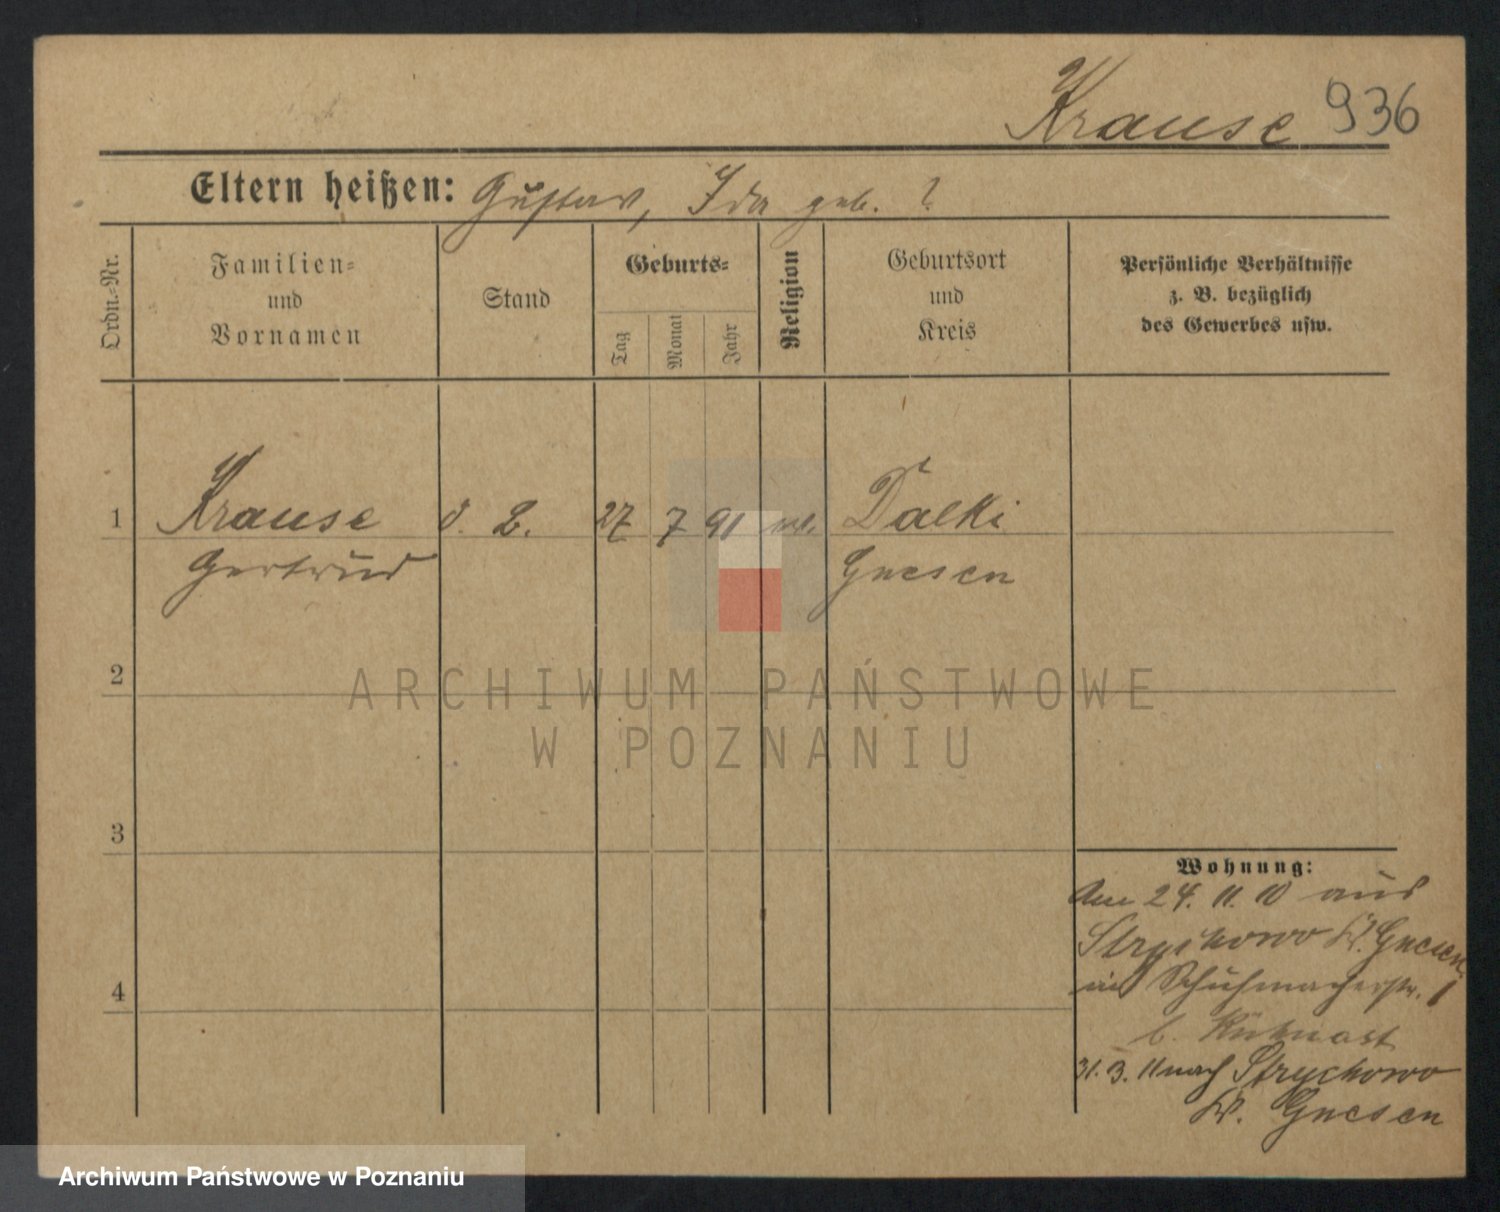 Krause 936
Eltern heißen: Gustav, Ida geb. ?
Ordn.-Nr.
Familien-
und
Vornamen
Stand
Geburts-
Tag
Monat
Jahr
Religion
Geburtsort
und
Kreis
Persönliche Verhältnisse
z. B. bezüglich
des Gewerbes usw.
1 Krause 27 7 91 Dalki
Gertrud Gnesen
2
3
4
Wohnung:
Am 24. 11. 10 aus
Strychowo Kr. Gnesen
Schuhmacherstr. 1
b. Kühnast
31. 3. 11 nach Strychowo
Kr. Gnesen
ARCHIWUM PAŃSTWOWE
W POZNANIU
Archiwum Państwowe w Poznaniu